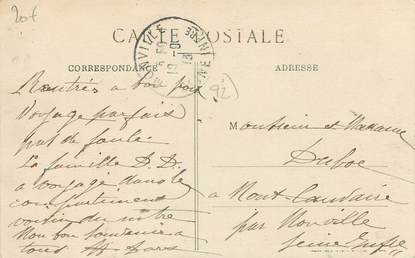 20f
CARTE POSTALE
CORRESPONDANCE
ADRESSE
92
Rentrés a bon port
Voyage parfait
pas de foule
La famille D.D.
a voyagé dans le
compartiment
voisin du nôtre
Mon bon souvenir a
tous
Monsieur et Madame
Duboc
a Mont
par
Seine Infre